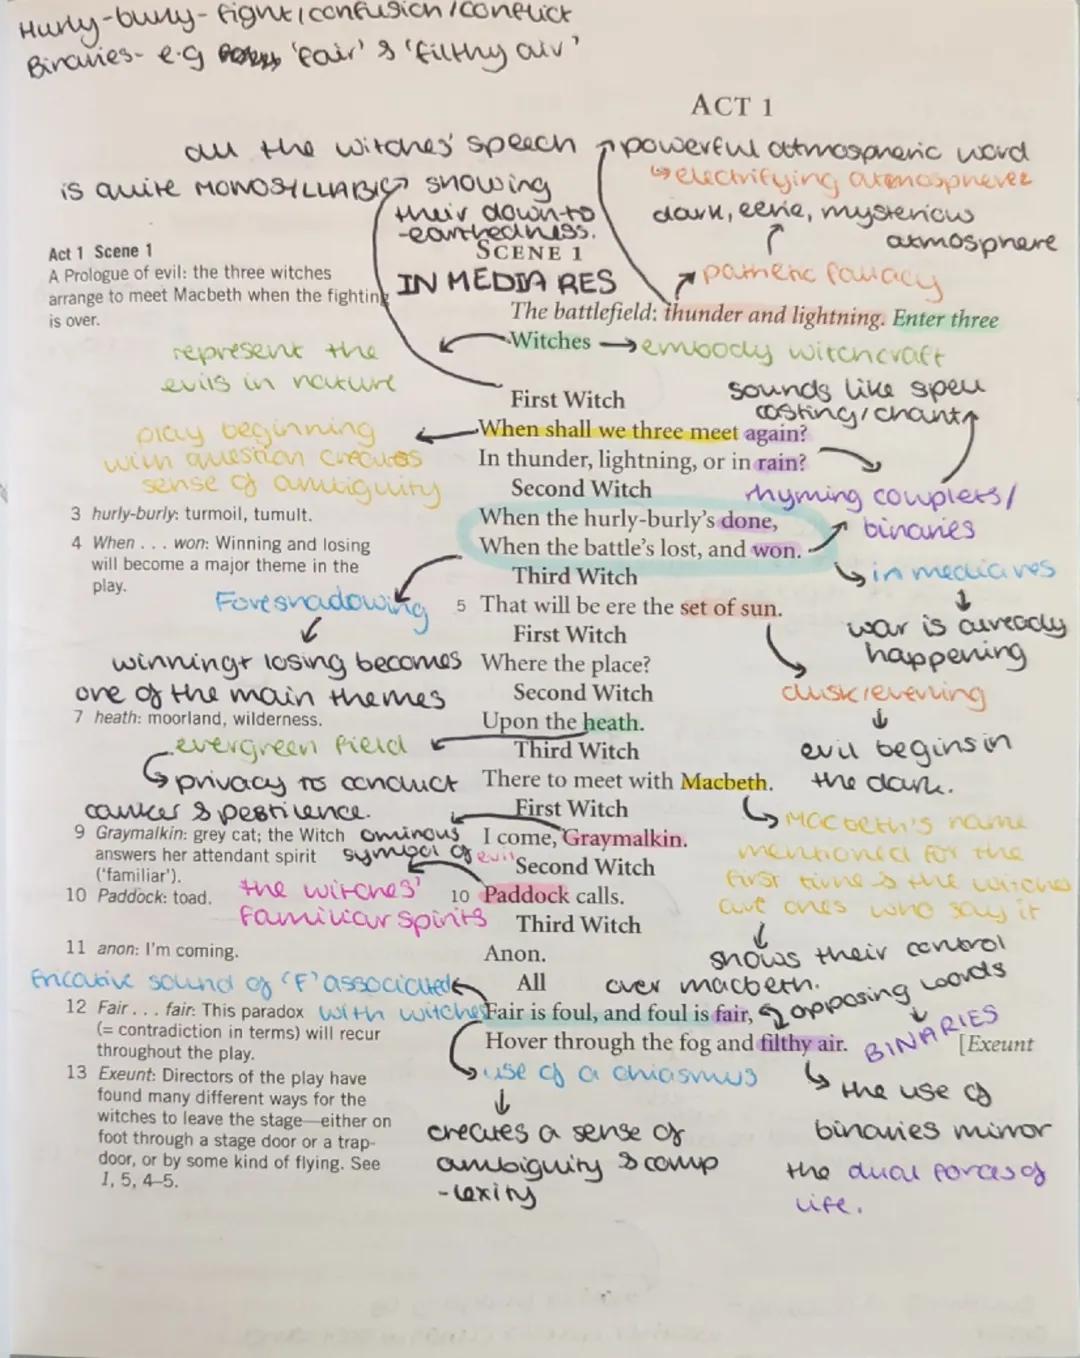 Hurly-burly- fight/confusion/conflict
Binaries- e.g 'fair' & 'filthy air'
ACT 1
all the witches' speech
is quite MONOSYLLABIC showing
their down-to
-earthedness.
powerful atmospheric word
electrifying atmosphere
dark, eerie, mysterious
atmosphere
pathetic fallacy
Act 1 Scene 1
A Prologue of evil: the three witches
arrange to meet Macbeth when the fighting
is over.
SCENE 1
IN MEDIA RES
The battlefield: thunder and lightning. Enter three
Witches
embody witchcraft
represent the
evils in nature
First Witch
sounds like spell
casting/chant
play beginning
with question creates
sense of ambiguity
When shall we three meet again?
In thunder, lightning, or in rain?
Second Witch
rhyming couplets/
binaries
3 hurly-burly: turmoil, tumult.
When the hurly-burly's done,
4 When . . . won: Winning and losing
will become a major theme in the
play.
When the battle's lost, and won.
in media res
war is already
happening
Third Witch
Foreshadowing
winning+ losing becomes
one of the main themes
5 That will be ere the set of sun.
dusk/evening
evil begins in
the dark.
First Witch
Where the place?
Second Witch
7 heath: moorland, wilderness.
Upon the heath.
evergreen field
privacy to conduct
canker & pestilence.
Third Witch
There to meet with Macbeth.
Macbeth's name
mentioned for the
first time & the witches
are ones who say it
shows their control
over macbeth.
First Witch
9 Graymalkin: grey cat; the Witch
answers her attendant spirit
('familiar').
ominous
symbol of evil
I come, Graymalkin.
Second Witch
10 Paddock: toad.
the witches'
familiar spirits
10 Paddock calls.
Third Witch
11 anon: I'm coming.
Anon.
All
fricative sound of 'F' associated
with witches
12 Fair . . . fair: This paradox
(= contradiction in terms) will recur
throughout the play.
Fair is foul, and foul is fair,
opposing words
BINARIES
Hover through the fog and filthy air.
[Exeunt
use of a chiasmus
creates a sense of
ambiguity & comp
-lexity
the use of
binaries mirror
the dual forces of
life.
13 Exeunt: Directors of the play have
found many different ways for the
witches to leave the stage—either on
foot through a stage door or a trap-
door, or by some kind of flying. See
1, 5, 4–5.